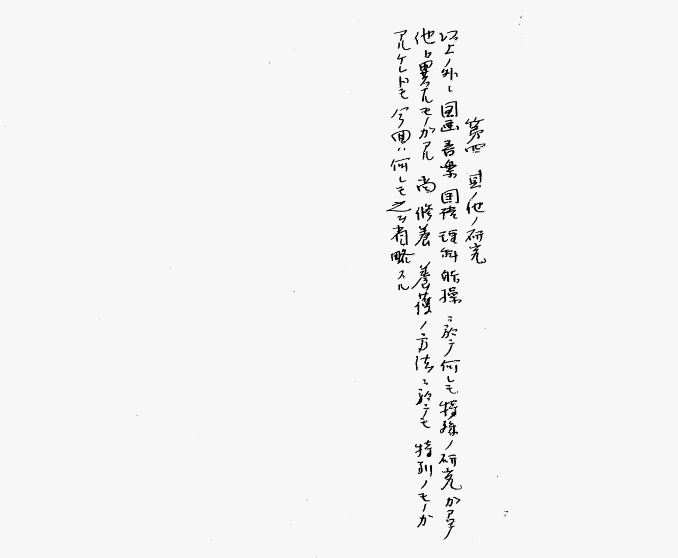 第四 其ノ他ノ研究
以上ノ外ニ図画音楽国語理科体操ニ於テ何レモ特殊ノ研究ガアツテ
他ト異ルモノガアル 尚修養 養護ノ方法ニ於テモ特別ノモノガ
アルケレドモ今回ハ何レモ之ヲ省略スル